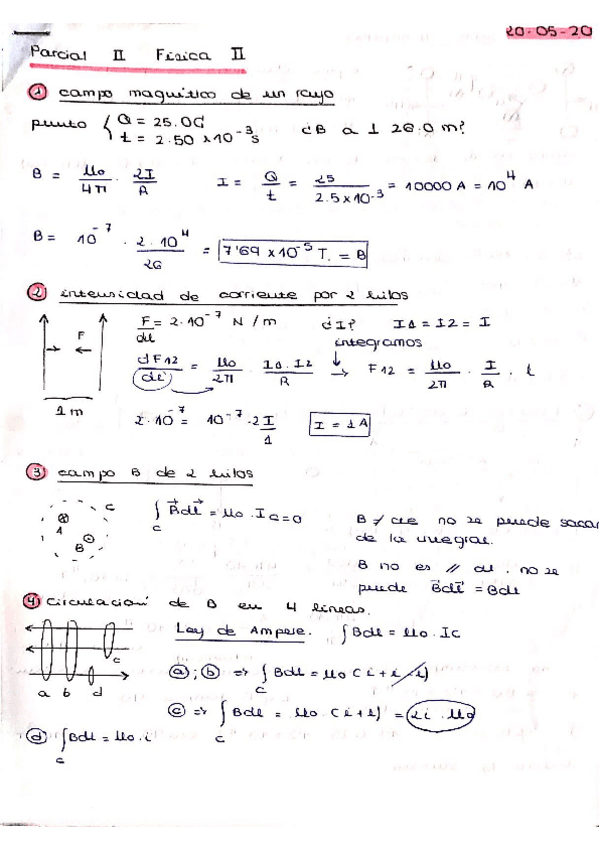 20-05-20
Parcial II Física II
① campo magnético de un rayo
punto { Q = 25.0C
t = 2.50 x10⁻³s
¿B a ⊥ 26.0 m?
B = μ₀/4π · 2I/R   I = Q/t = 25/2.5x10⁻³ = 10000 A = 10⁴ A
B = 10⁻⁷ · 2·10⁴/26 = 7'69 x10⁻⁵ T. = B
② intensidad de corriente por 2 hilos
F/dl = 2·10⁻⁷ N/m   ¿I?   I1 = I2 = I
F
integramos
dF12/dl = μ₀/2π · I1·I2/R → F12 = μ₀/2π · I/R · l
1 m
2·10⁻⁷ = 10⁻⁷·2 I/1   I = 1A
③ campo B de 2 hilos
C
A
B
∫c B⃗dl⃗ = μ₀·Ic = 0
B ≠ cte no se puede sacar
de la integral.
B no es // dl. no se
puede B⃗dl⃗ = Bdl
④ circulación de B en 4 líneas.
Ley de Ampere. ∫Bdl = μ₀·Ic
a b c d
ⓐ; ⓑ ⇒ ∫c Bdl = μ₀(i+i-i)
ⓒ ⇒ ∫c Bdl = μ₀·(i+i) = 2i·μ₀
ⓓ ∫c Bdl = μ₀·i